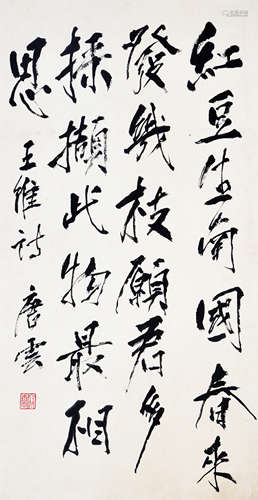 紅豆生南國春來
發幾枝願君多
採擷此物最相
思
王維詩
唐雲